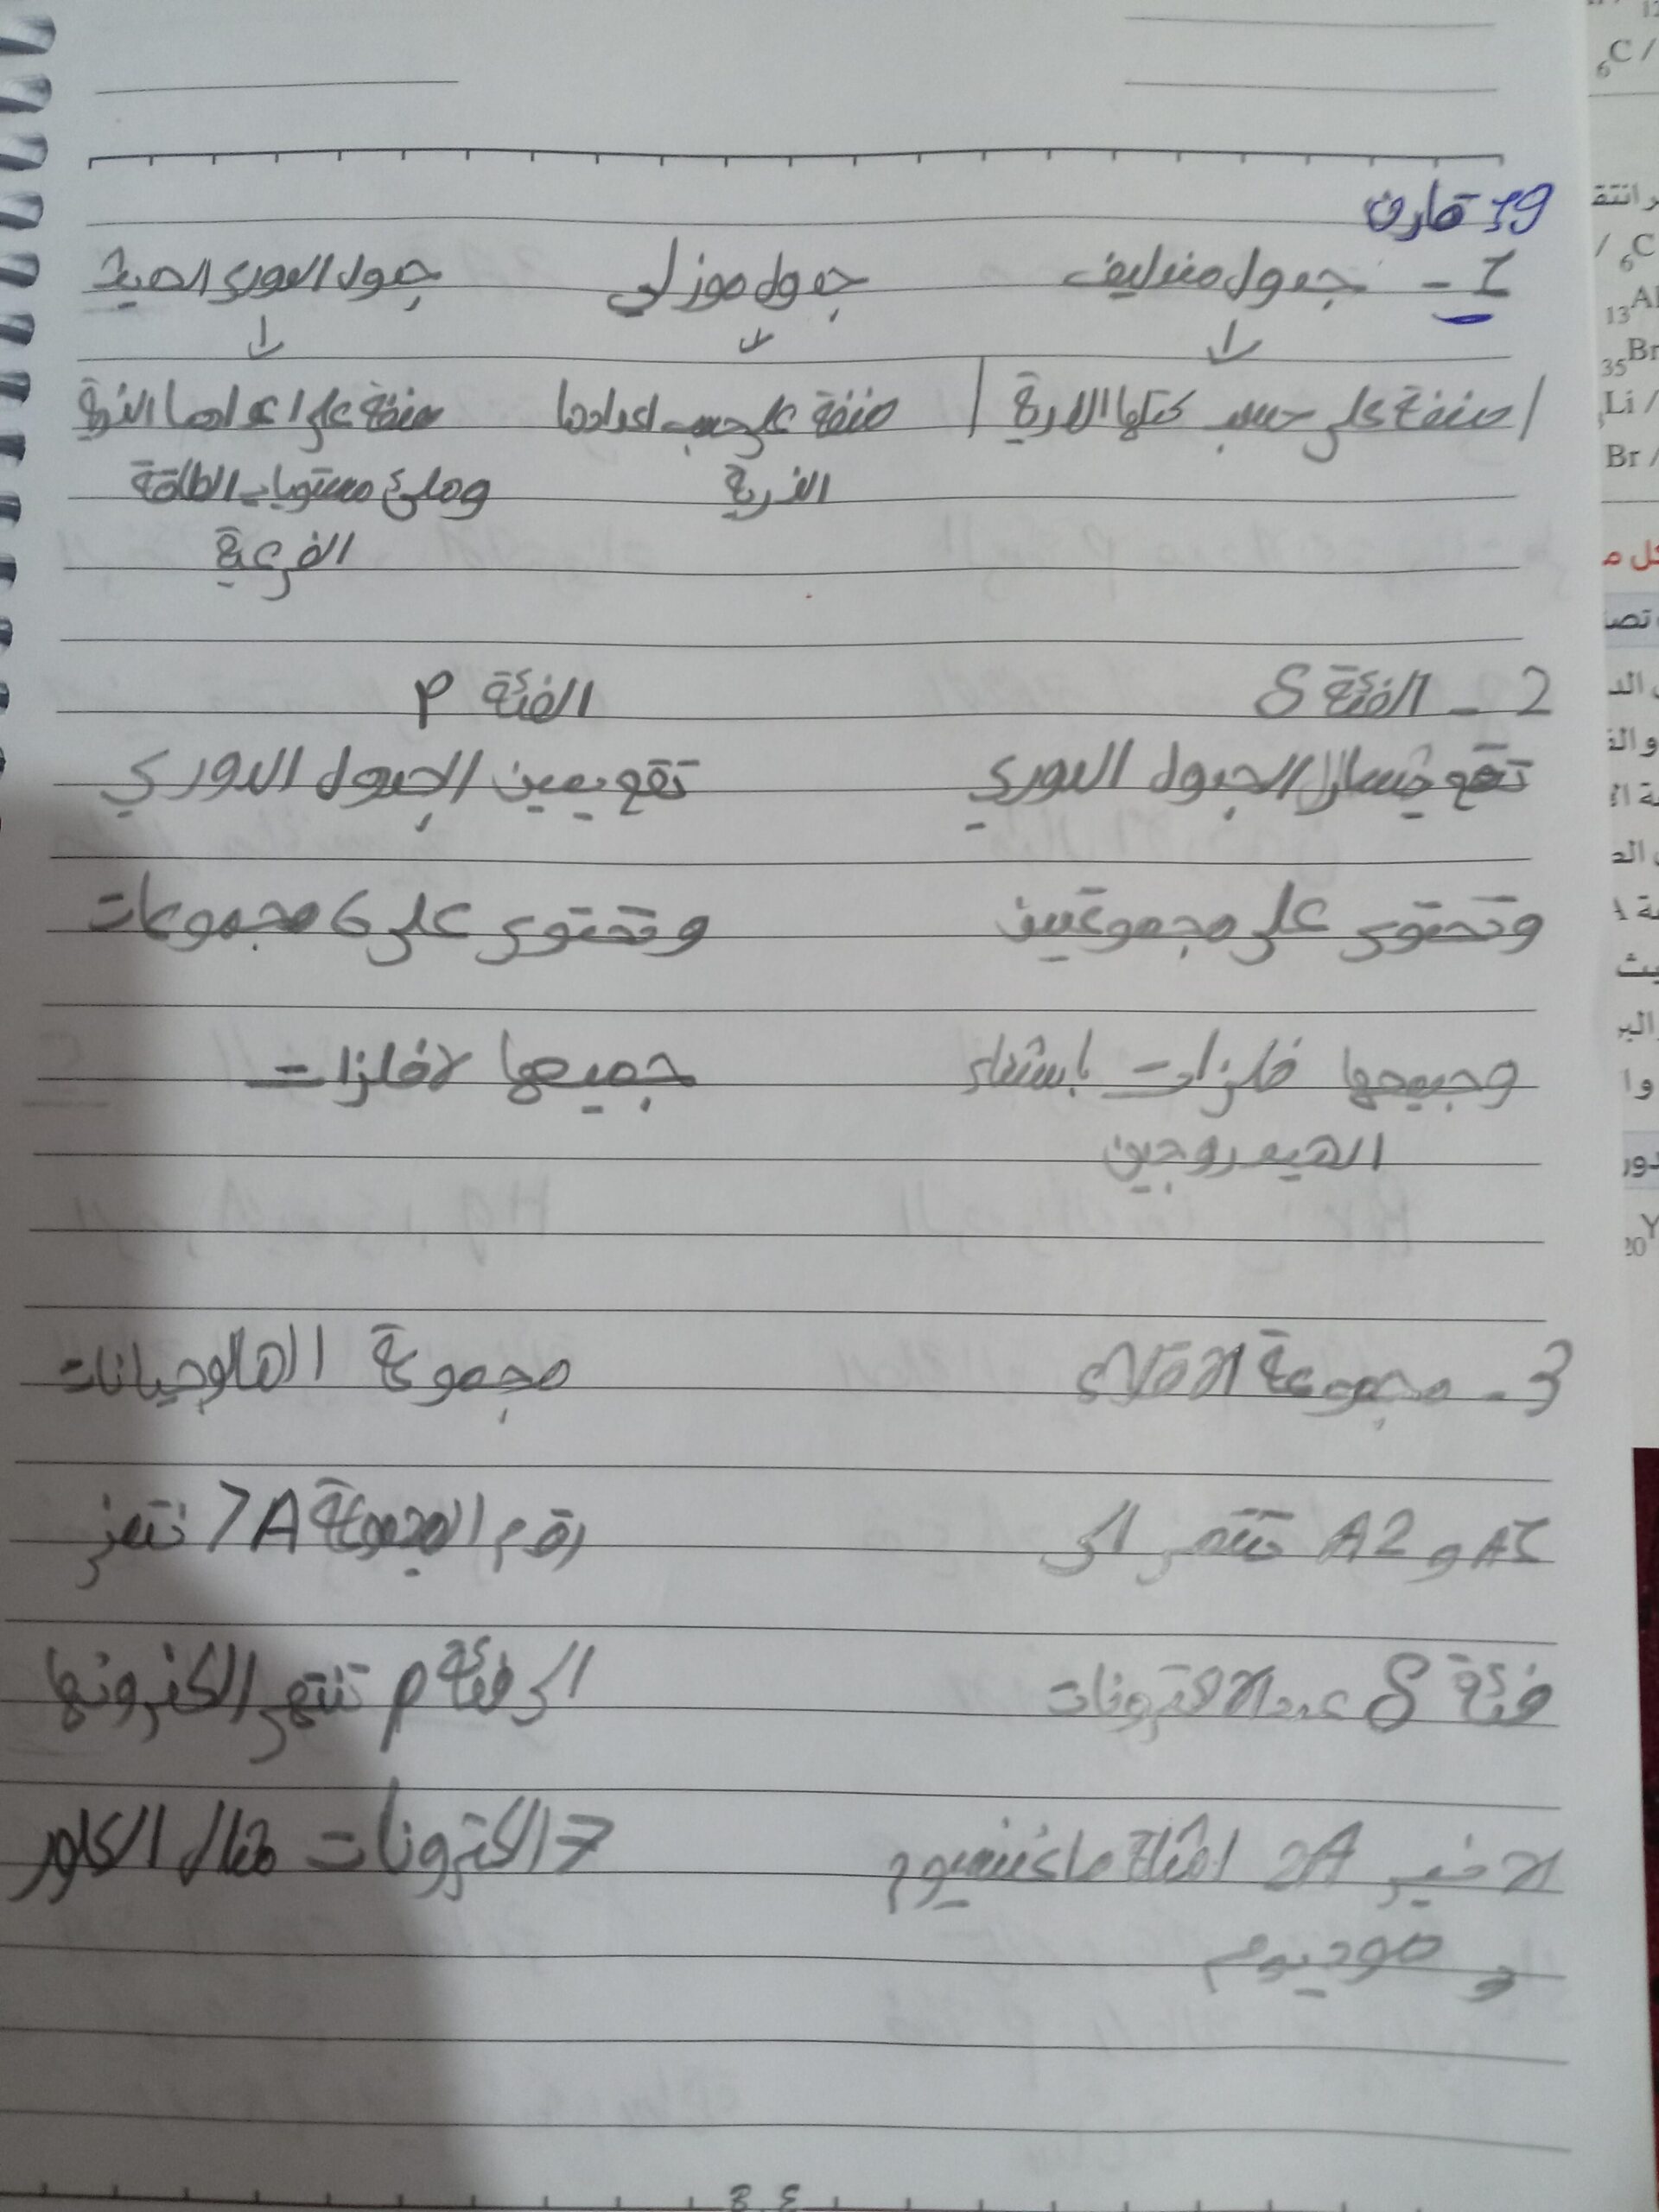 19 قارن
1 - جدول مندليف جدول موزلي جدول الدوري الحديث
صنفة على حسب كتلها الذرية صنفة على حسب اعدادها صنفة على اعدادها الذرية
الذرية وملئ مستويات الطاقة
الفرعية
2 - الفئة S الفئة P
تقع يسار الجدول الدوري تقع يمين الجدول الدوري
وتحتوي على مجموعتين وتحتوي على 6 مجموعات
وجميعها فلزات باستثناء جميعها لافلزات
الهيدروجين
3 - مجموعة الاقلاء مجموعة الهالوجينات
A1 و A2 تنتمي الى رقم المجموعة 7A تنتمي
فئة S عدد الاكترونات الى فئة P تنتهي الكترونها
الاخير 2A امثلة ماغنسيوم 7 الكترونات مثال الكلور
و صوديوم
6C /
ر انتقـ
/ 6C
13Al
35Br
Li /
Br /
كل م
20Y